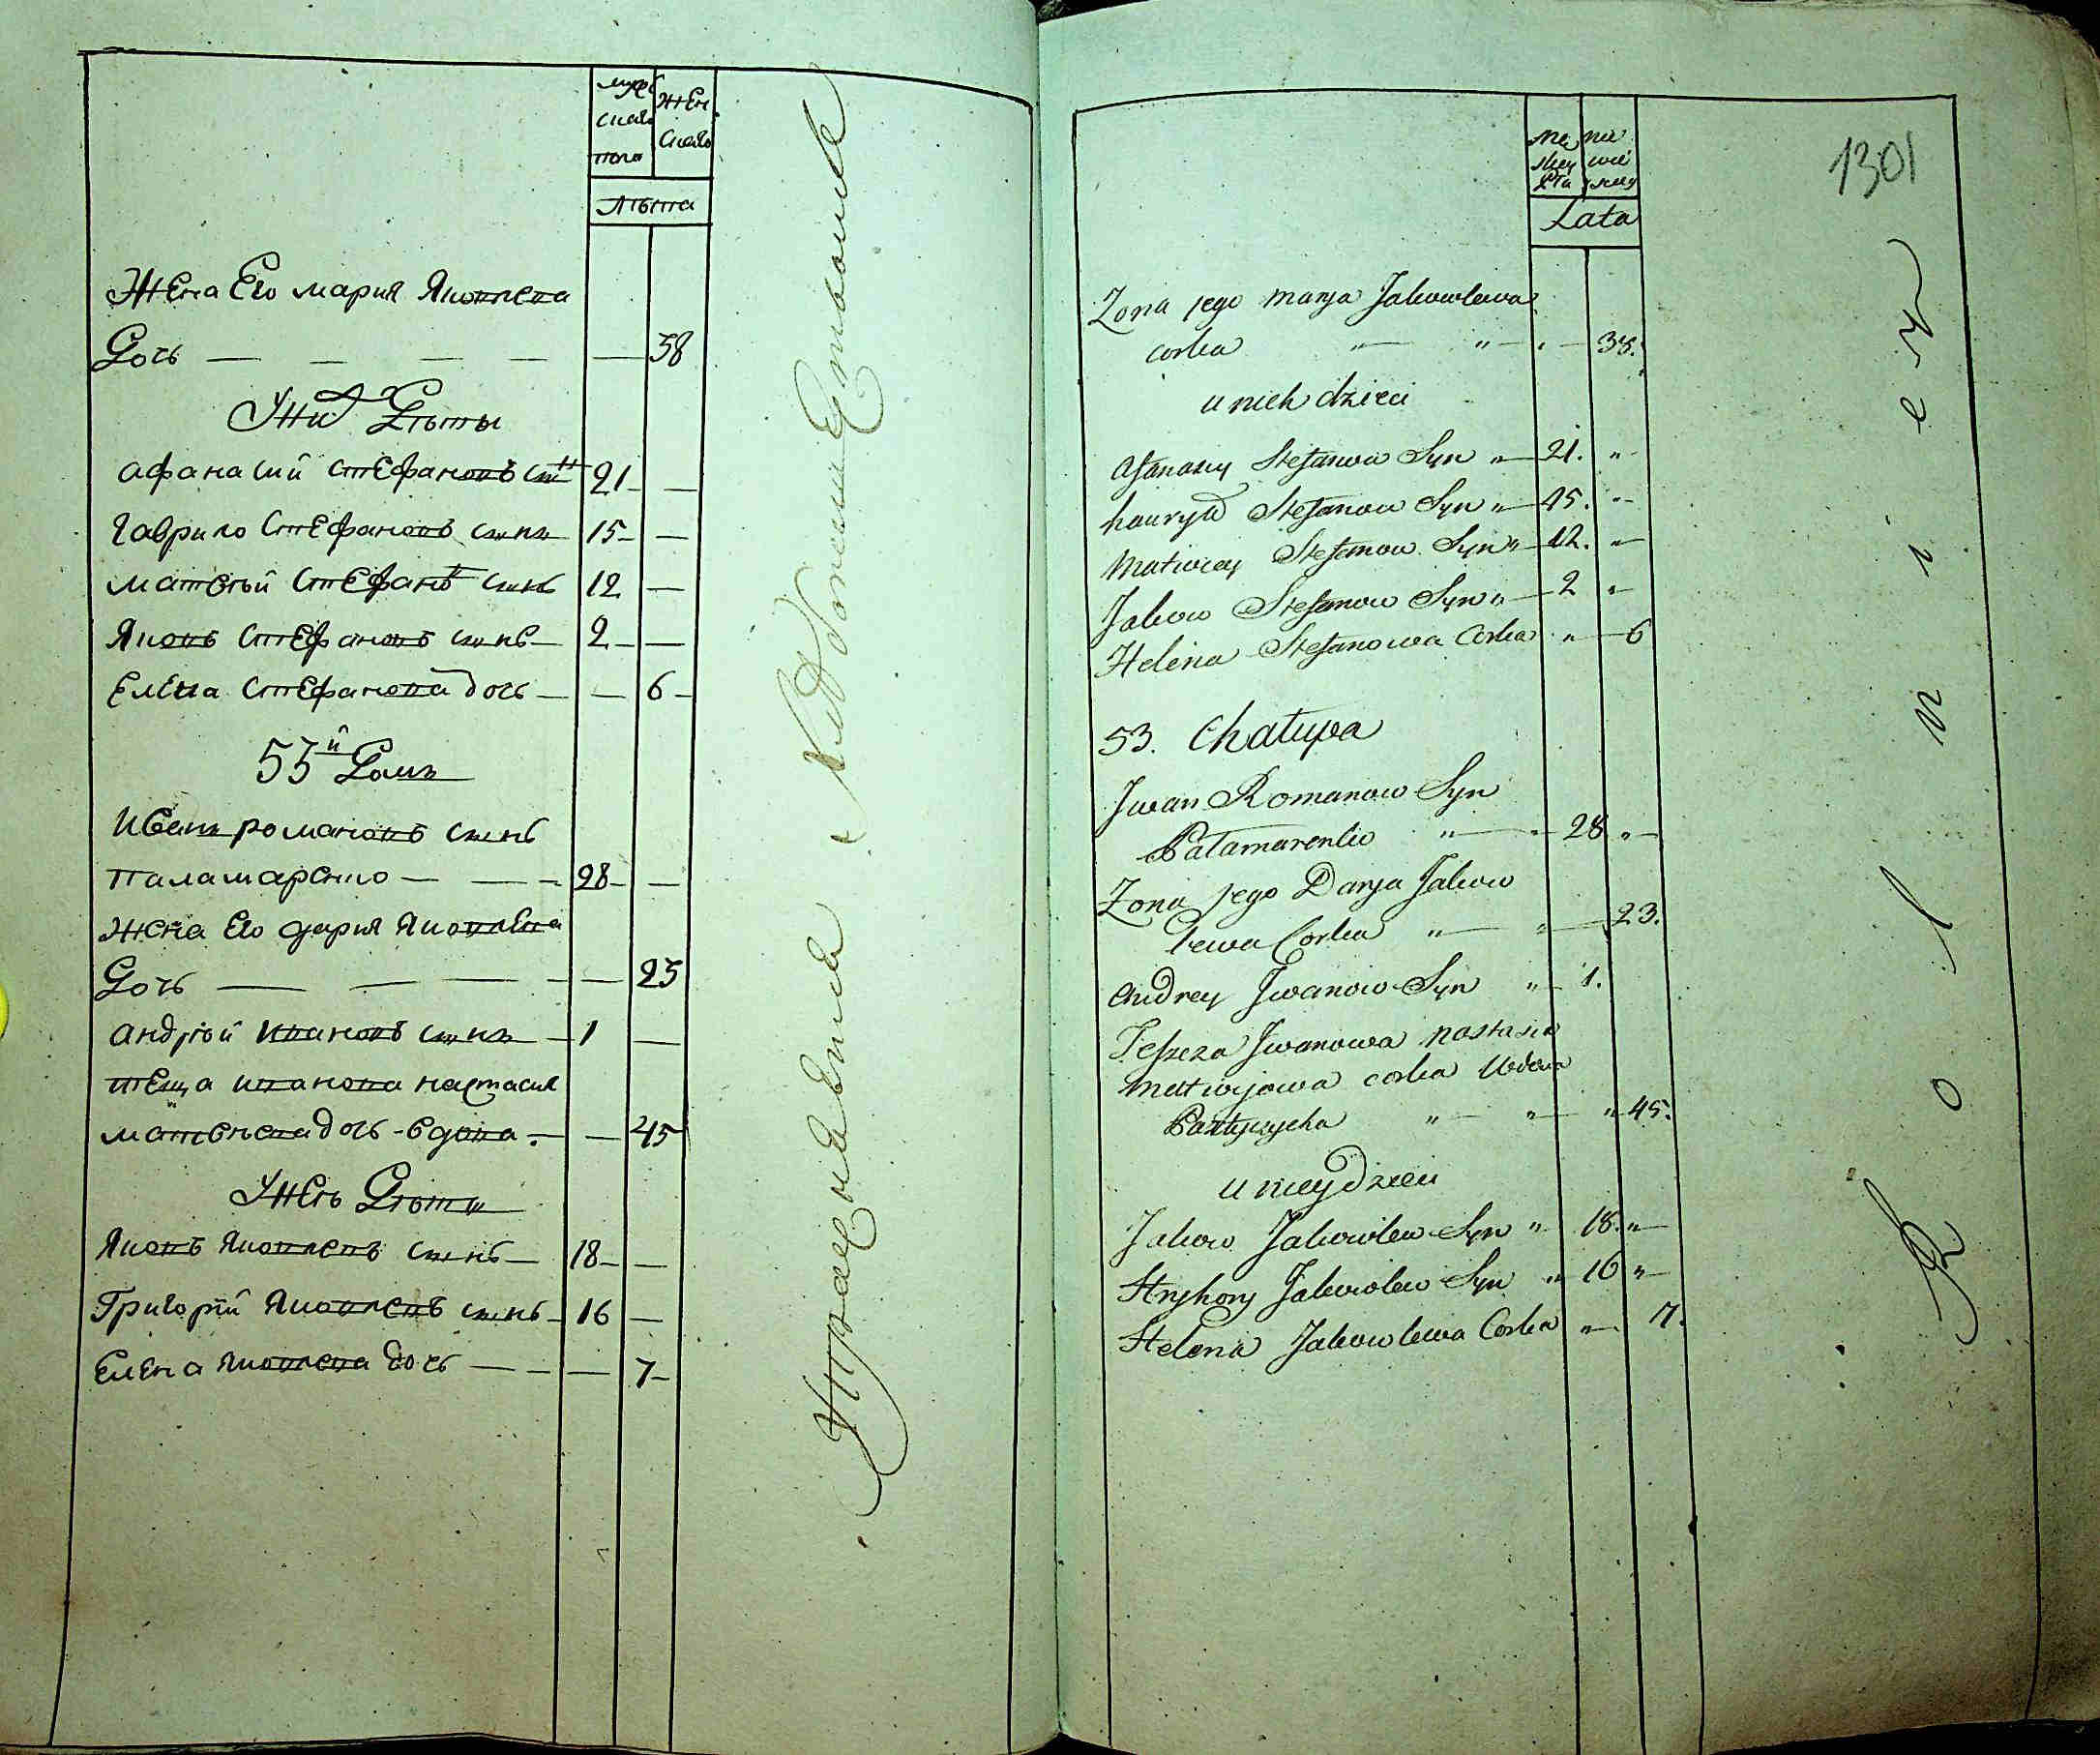 мужеска пола
женска
лѣта
Жена Его мария Яковлева
Дочь — — — — — 38
У них Дѣты
Афанасий Стефановъ сынъ 21 —
Гаврило Стефановъ сынъ 15 —
Матвѣй Стефановъ сынъ 12 —
Яковъ Стефановъ сынъ — 2 —
Елена Стефанова дочь — — 6 —
53й Домъ
Иванъ романовъ сынъ
Паламаренко — — — 28 —
Жена Его дария Яковлева
Дочь — — — — 23
Андрѣй Ивановъ сынъ — 1 —
теща иванова настасия
матвѣева дочь - вдова. — — 45
У неѣ Дѣты
Яковъ Яковлевъ сынъ — 18 —
Григорий Яковлевъ сынъ — 16 —
Елена Яковлева дочь — — — 7 —
Lata
1301
Zona jego Marya Jakowlewa
corka " " " — 38.
u nich dzieci
Afanasiy Stefanow Syn " — 21. "
hauryło Stefanow Syn " — 15. "
Matwiey Stefanow Syn " — 12. "
Jakow Stefanow Syn " — 2 "
Helena Stefanowa Corka " — 6
53. Chałupa
Jwan Romanow Syn
Pałamarenko " — " — 28 " —
Zona jego Darya Jakow
lewa Corka " — " — 23.
Andrey Jwanow Syn " — 1.
Teszcza Jwanowa nastasia
Matwijowa corka Wdowa
" — " — " 45.
u niey dzieci
Jakow Jakowlew Syn " 18. "
Hryhory Jakowlew Syn " 16 "
Helena Jakowlewa Corka " — 7.